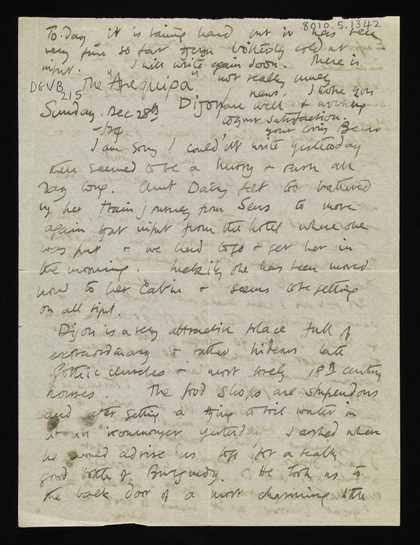 8010.5.1342
To-day it is raining hard but it has been
very fine so far tho' cold at
night. I will write again soon. There is
The "Arequipa" not really much
DGVB 215
news. I hope you
Sunday. Dec 28th Dijon are well & working
to your satisfaction.
your loving
I am sorry I could'nt write yesterday
there seemed to be a hurry & rush all
day long. Aunt Daisy felt so battered
by her train journey from Sens to move
again last night from the hotel where she
was put & we had to go & get her in
the morning. Luckily she has been moved
now to her Cabin & seems to be getting
on all right.
Dijon is a very attractive place full of
extraordinary & rather hideous late
Gothic churches & most lovely 18th century
houses. The food shops are stupendous
and after getting a thing to boil water in
at an ironmonger yesterday I asked when
he would advise us to go for a really
good bottle of Burgundy. He took us to
the back door of a most charming little